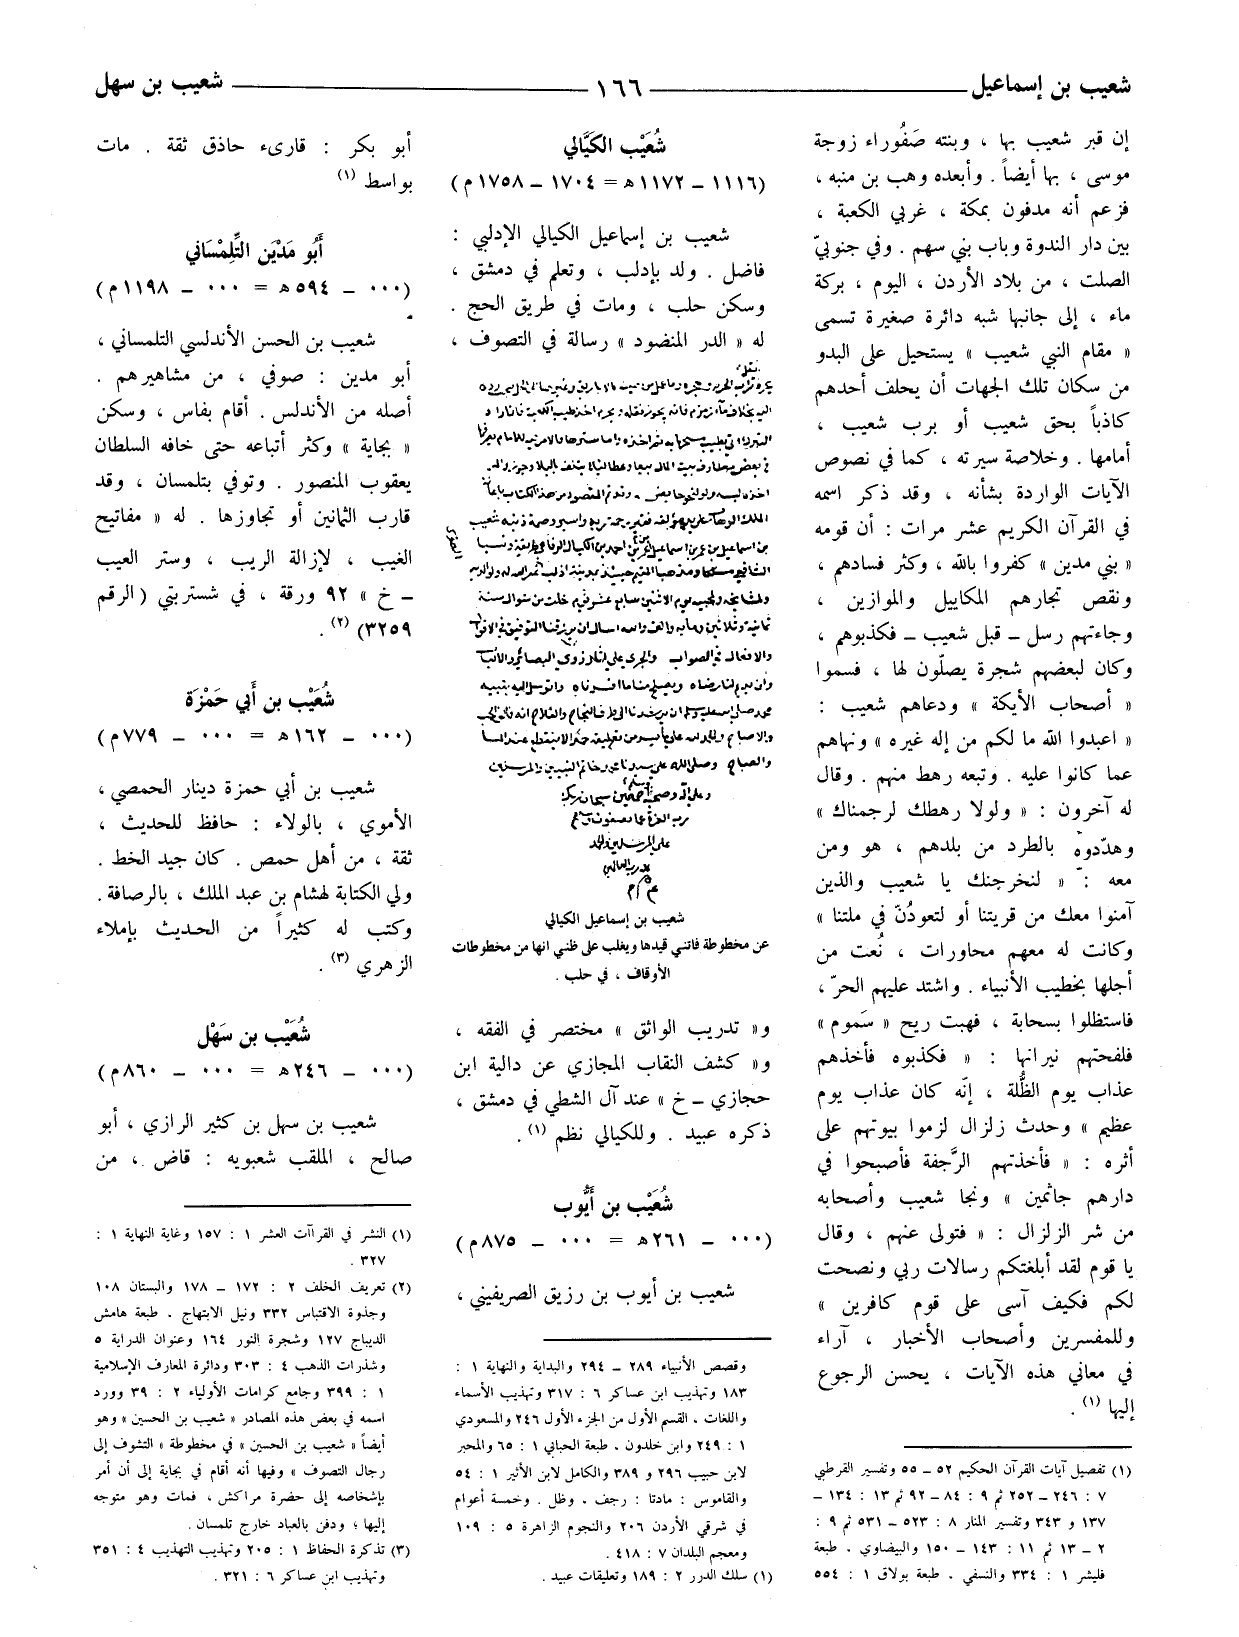 شعيب بن إسماعيل ١٦٦ شعيب بن سهل
إن قبر شعيب بها ، وبنته صَفُوراء زوجة
موسى ، بها أيضاً . وأبعده وهب بن منبه ،
فزعم أنه مدفون بمكة ، غربي الكعبة ،
بين دار الندوة وباب بني سهم . وفي جنوبيّ
الصلت ، من بلاد الأردن ، اليوم ، بركة
ماء ، إلى جانبها شبه دائرة صغيرة تسمى
« مقام النبي شعيب » يستحيل على البدو
من سكان تلك الجهات أن يحلف أحدهم
كاذباً بحق شعيب أو برب شعيب ،
أمامها . وخلاصة سيرته ، كما في نصوص
الآيات الواردة بشأنه ، وقد ذكر اسمه
في القرآن الكريم عشر مرات : أن قومه
« بني مدين » كفروا بالله ، وكثر فسادهم ،
ونقص تجارهم المكاييل والموازين ،
وجاءتهم رسل – قبل شعيب – فكذبوهم ،
وكان لبعضهم شجرة يصلّون لها ، فسموا
« أصحاب الأيكة » ودعاهم شعيب :
« اعبدوا الله ما لكم من إله غيره » ونهاهم
عما كانوا عليه . وتبعه رهط منهم . وقال
له آخرون : « ولولا رهطك لرجمناك »
وهدّدوه بالطرد من بلدهم ، هو ومن
معه : « لنخرجنك يا شعيب والذين
آمنوا معك من قريتنا أو لتعودُنّ في ملتنا »
وكانت له معهم محاورات ، نُعت من
أجلها بخطيب الأنبياء . واشتد عليهم الحرّ ،
فاستظلوا بسحابة ، فهبت ريح « سَموم »
فلفحتهم نيرانها : « فكذبوه فأخذهم
عذاب يوم الظُّلة ، إنّه كان عذاب يوم
عظيم » وحدث زلزال لزموا بيوتهم على
أثره : « فأخذتهم الرَّجفة فأصبحوا في
دارهم جاثمين » ونجا شعيب وأصحابه
من شر الزلزال : « فتولى عنهم ، وقال
يا قوم لقد أبلغتكم رسالات ربي ونصحت
لكم فكيف آسى على قوم كافرين »
وللمفسرين وأصحاب الأخبار ، آراء
في معاني هذه الآيات ، يحسن الرجوع
إليها (١) .
(١) تفصيل آيات القرآن الحكيم ٥٢ – ٥٥ وتفسير القرطبي
٧ : ٢٤٦ – ٢٥٢ ثم ٩ : ٨٤ – ٩٢ ثم ١٣ : ١٣٤ –
١٣٧ و ٣٤٣ وتفسير المنار ٨ : ٥٢٣ – ٥٣١ ثم ٩ :
٢ – ١٣ ثم ١١ : ١٤٣ – ١٥٠ والبيضاوي ، طبعة
فليشر ١ : ٣٣٤ والنسفي ، طبعة بولاق ١ : ٥٥٤
شُعَيْب الكَيَّالي
(١١١٦ – ١١٧٢ ه = ١٧٠٤ – ١٧٥٨ م)
شعيب بن إسماعيل الكيالي الإدلبي :
فاضل . ولد بإدلب ، وتعلم في دمشق ،
وسكن حلب ، ومات في طريق الحج .
له « الدر المنضود » رسالة في التصوف ،
شعيب بن إسماعيل الكيالي
عن مخطوطة فاتني قيدها ويغلب على ظني انها من مخطوطات
الأوقاف ، في حلب .
و« تدريب الواثق » مختصر في الفقه ،
و« كشف النقاب المجازي عن دالية ابن
حجازي – خ » عند آل الشطي في دمشق ،
ذكره عبيد . وللكيالي نظم (١) .
شُعَيْب بن أَيُّوب
(٠٠٠ – ٢٦١ ه = ٠٠٠ – ٨٧٥ م)
شعيب بن أيوب بن رزيق الصريفيني ،
وقصص الأنبياء ٢٨٩ – ٢٩٤ والبداية والنهاية ١ :
١٨٣ وتهذيب ابن عساكر ٦ : ٣١٧ وتهذيب الأسماء
واللغات ، القسم الأول من الجزء الأول ٢٤٦ والمسعودي
١ : ٢٤٩ وابن خلدون ، طبعة الحبابي ١ : ٦٥ والمحبر
لابن حبيب ٢٩٦ و ٣٨٩ والكامل لابن الأثير ١ : ٥٤
والقاموس : مادتا : رجف ، وظل . وخمسة أعوام
في شرقي الأردن ٢٠٦ والنجوم الزاهرة ٥ : ١٠٩
ومعجم البلدان ٧ : ٤١٨ .
(١) سلك الدرر ٢ : ١٨٩ وتعليقات عبيد .
أبو بكر : قارىء حاذق ثقة . مات
بواسط (١)
أَبُو مَدْيَن التِّلِمْسَاني
(٠٠٠ – ٥٩٤ ه = ٠٠٠ – ١١٩٨ م)
شعيب بن الحسن الأندلسي التلمساني ،
أبو مدين : صوفي ، من مشاهيرهم .
أصله من الأندلس . أقام بفاس ، وسكن
« بجاية » وكثر أتباعه حتى خافه السلطان
يعقوب المنصور . وتوفي بتلمسان ، وقد
قارب الثمانين أو تجاوزها . له « مفاتيح
الغيب ، لإزالة الريب ، وستر العيب
– خ » ٩٢ ورقة ، في شستربتي (الرقم
٣٢٥٩) (٢) .
شُعَيْب بن أَبي حَمْزَة
(٠٠٠ – ١٦٢ ه = ٠٠٠ – ٧٧٩ م)
شعيب بن أبي حمزة دينار الحمصي ،
الأموي ، بالولاء : حافظ للحديث ،
ثقة ، من أهل حمص . كان جيد الخط .
ولي الكتابة لهشام بن عبد الملك ، بالرصافة .
وكتب له كثيراً من الحديث بإملاء
الزهري (٣) .
شُعَيْب بن سَهْل
(٠٠٠ – ٢٤٦ ه = ٠٠٠ – ٨٦٠ م)
شعيب بن سهل بن كثير الرازي ، أبو
صالح ، الملقب شعبويه : قاض ، من
(١) النشر في القراآت العشر ١ : ١٥٧ وغاية النهاية ١ :
٣٢٧ .
(٢) تعريف الخلف ٢ : ١٧٢ – ١٧٨ والبستان ١٠٨
وجذوة الاقتباس ٣٣٢ ونيل الابتهاج . طبعة هامش
الديباج ١٢٧ وشجرة النور ١٦٤ وعنوان الدراية ٥
وشذرات الذهب ٤ : ٣٠٣ ودائرة المعارف الإسلامية
١ : ٣٩٩ وجامع كرامات الأولياء ٢ : ٣٩ وورد
اسمه في بعض هذه المصادر « شعيب بن الحسين » وهو
أيضاً « شعيب بن الحسين » في مخطوطة « التشوف إلى
رجال التصوف » وفيها أنه أقام في بجاية إلى أن أمر
بإشخاصه إلى حضرة مراكش ، فمات وهو متوجه
إليها ؛ ودفن بالعباد خارج تلمسان .
(٣) تذكرة الحفاظ ١ : ٢٠٥ وتهذيب التهذيب ٤ : ٣٥١
وتهذيب ابن عساكر ٦ : ٣٢١ .